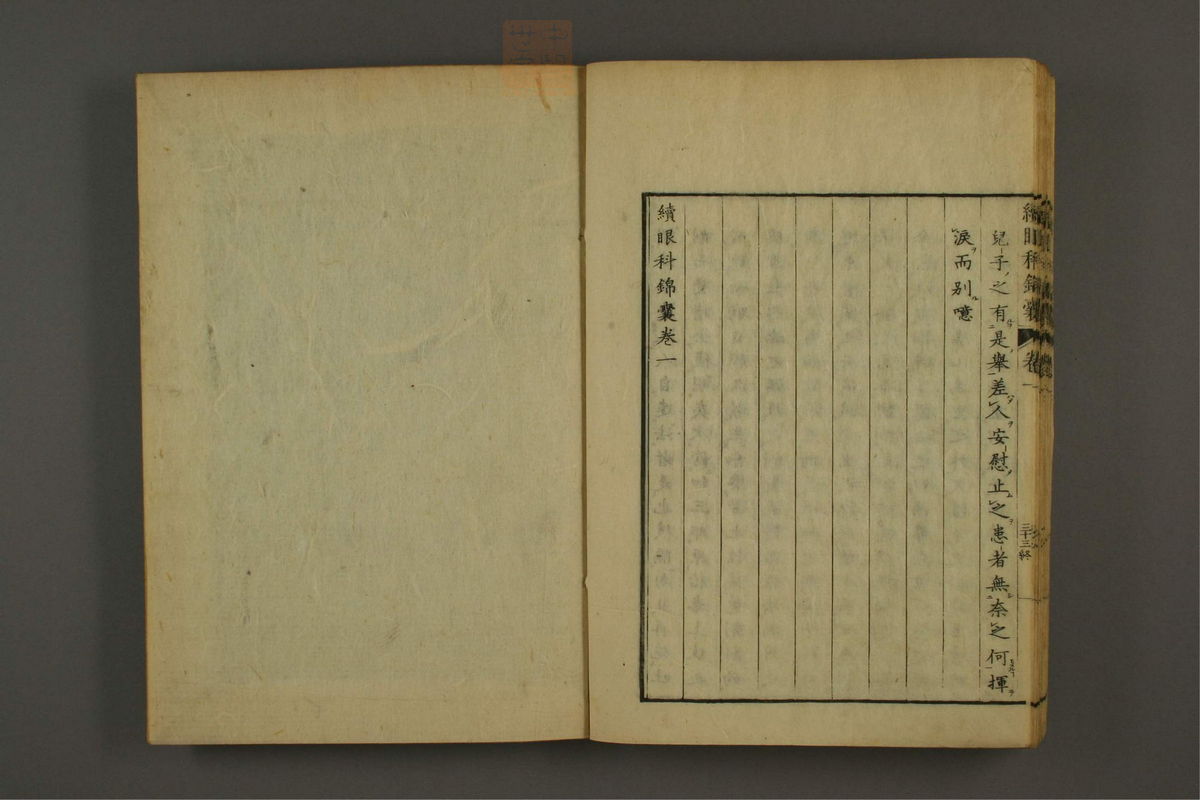 續眼科錦囊 卷一 三十三終
兒子之有是舉差人安慰止之患者無奈之何揮
淚而別噫
續眼科錦囊卷一